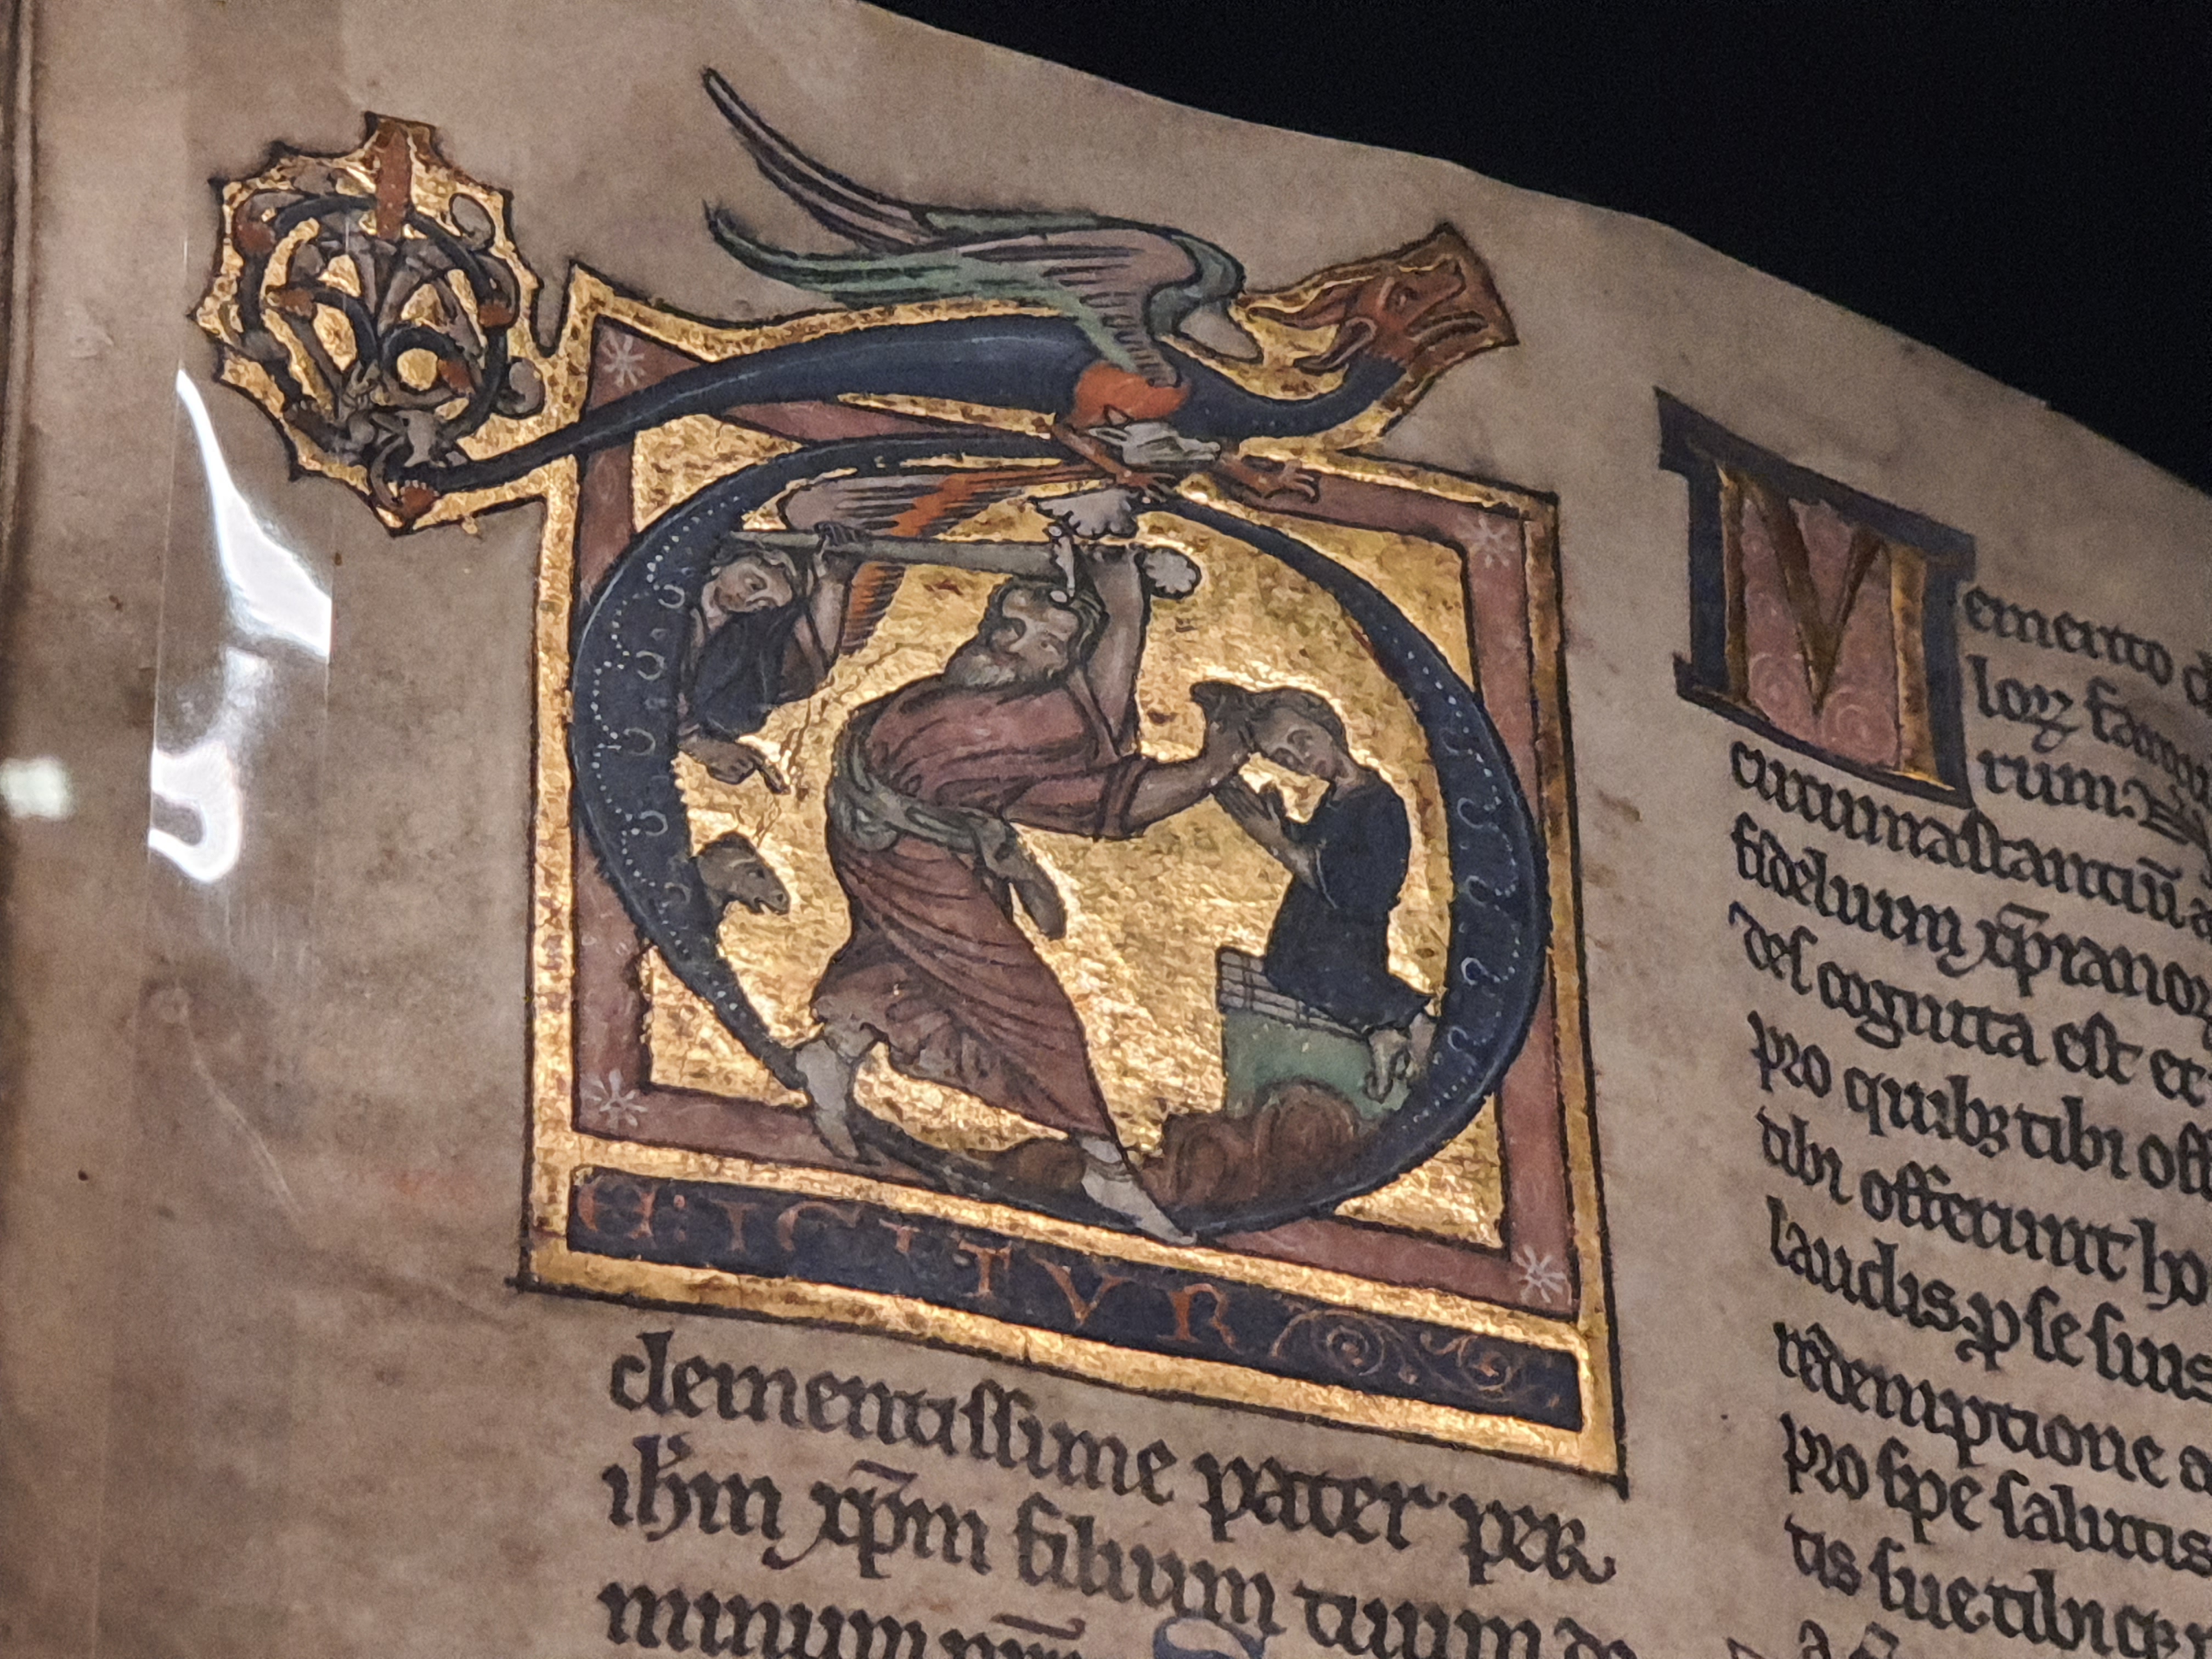 TE: IGITUR
clementissime pater per
ih̅m xp̅m filium tuum
Memento
loꝝ famu
rum
circumastantiu̅
fidelium xp̅ianoꝝ
des cognita est et
pro quibꝫ tibi off
tibi offerunt ho
laudis ꝓ se suis
rede̅mptione a
pro spe salutis
tis sue tibi